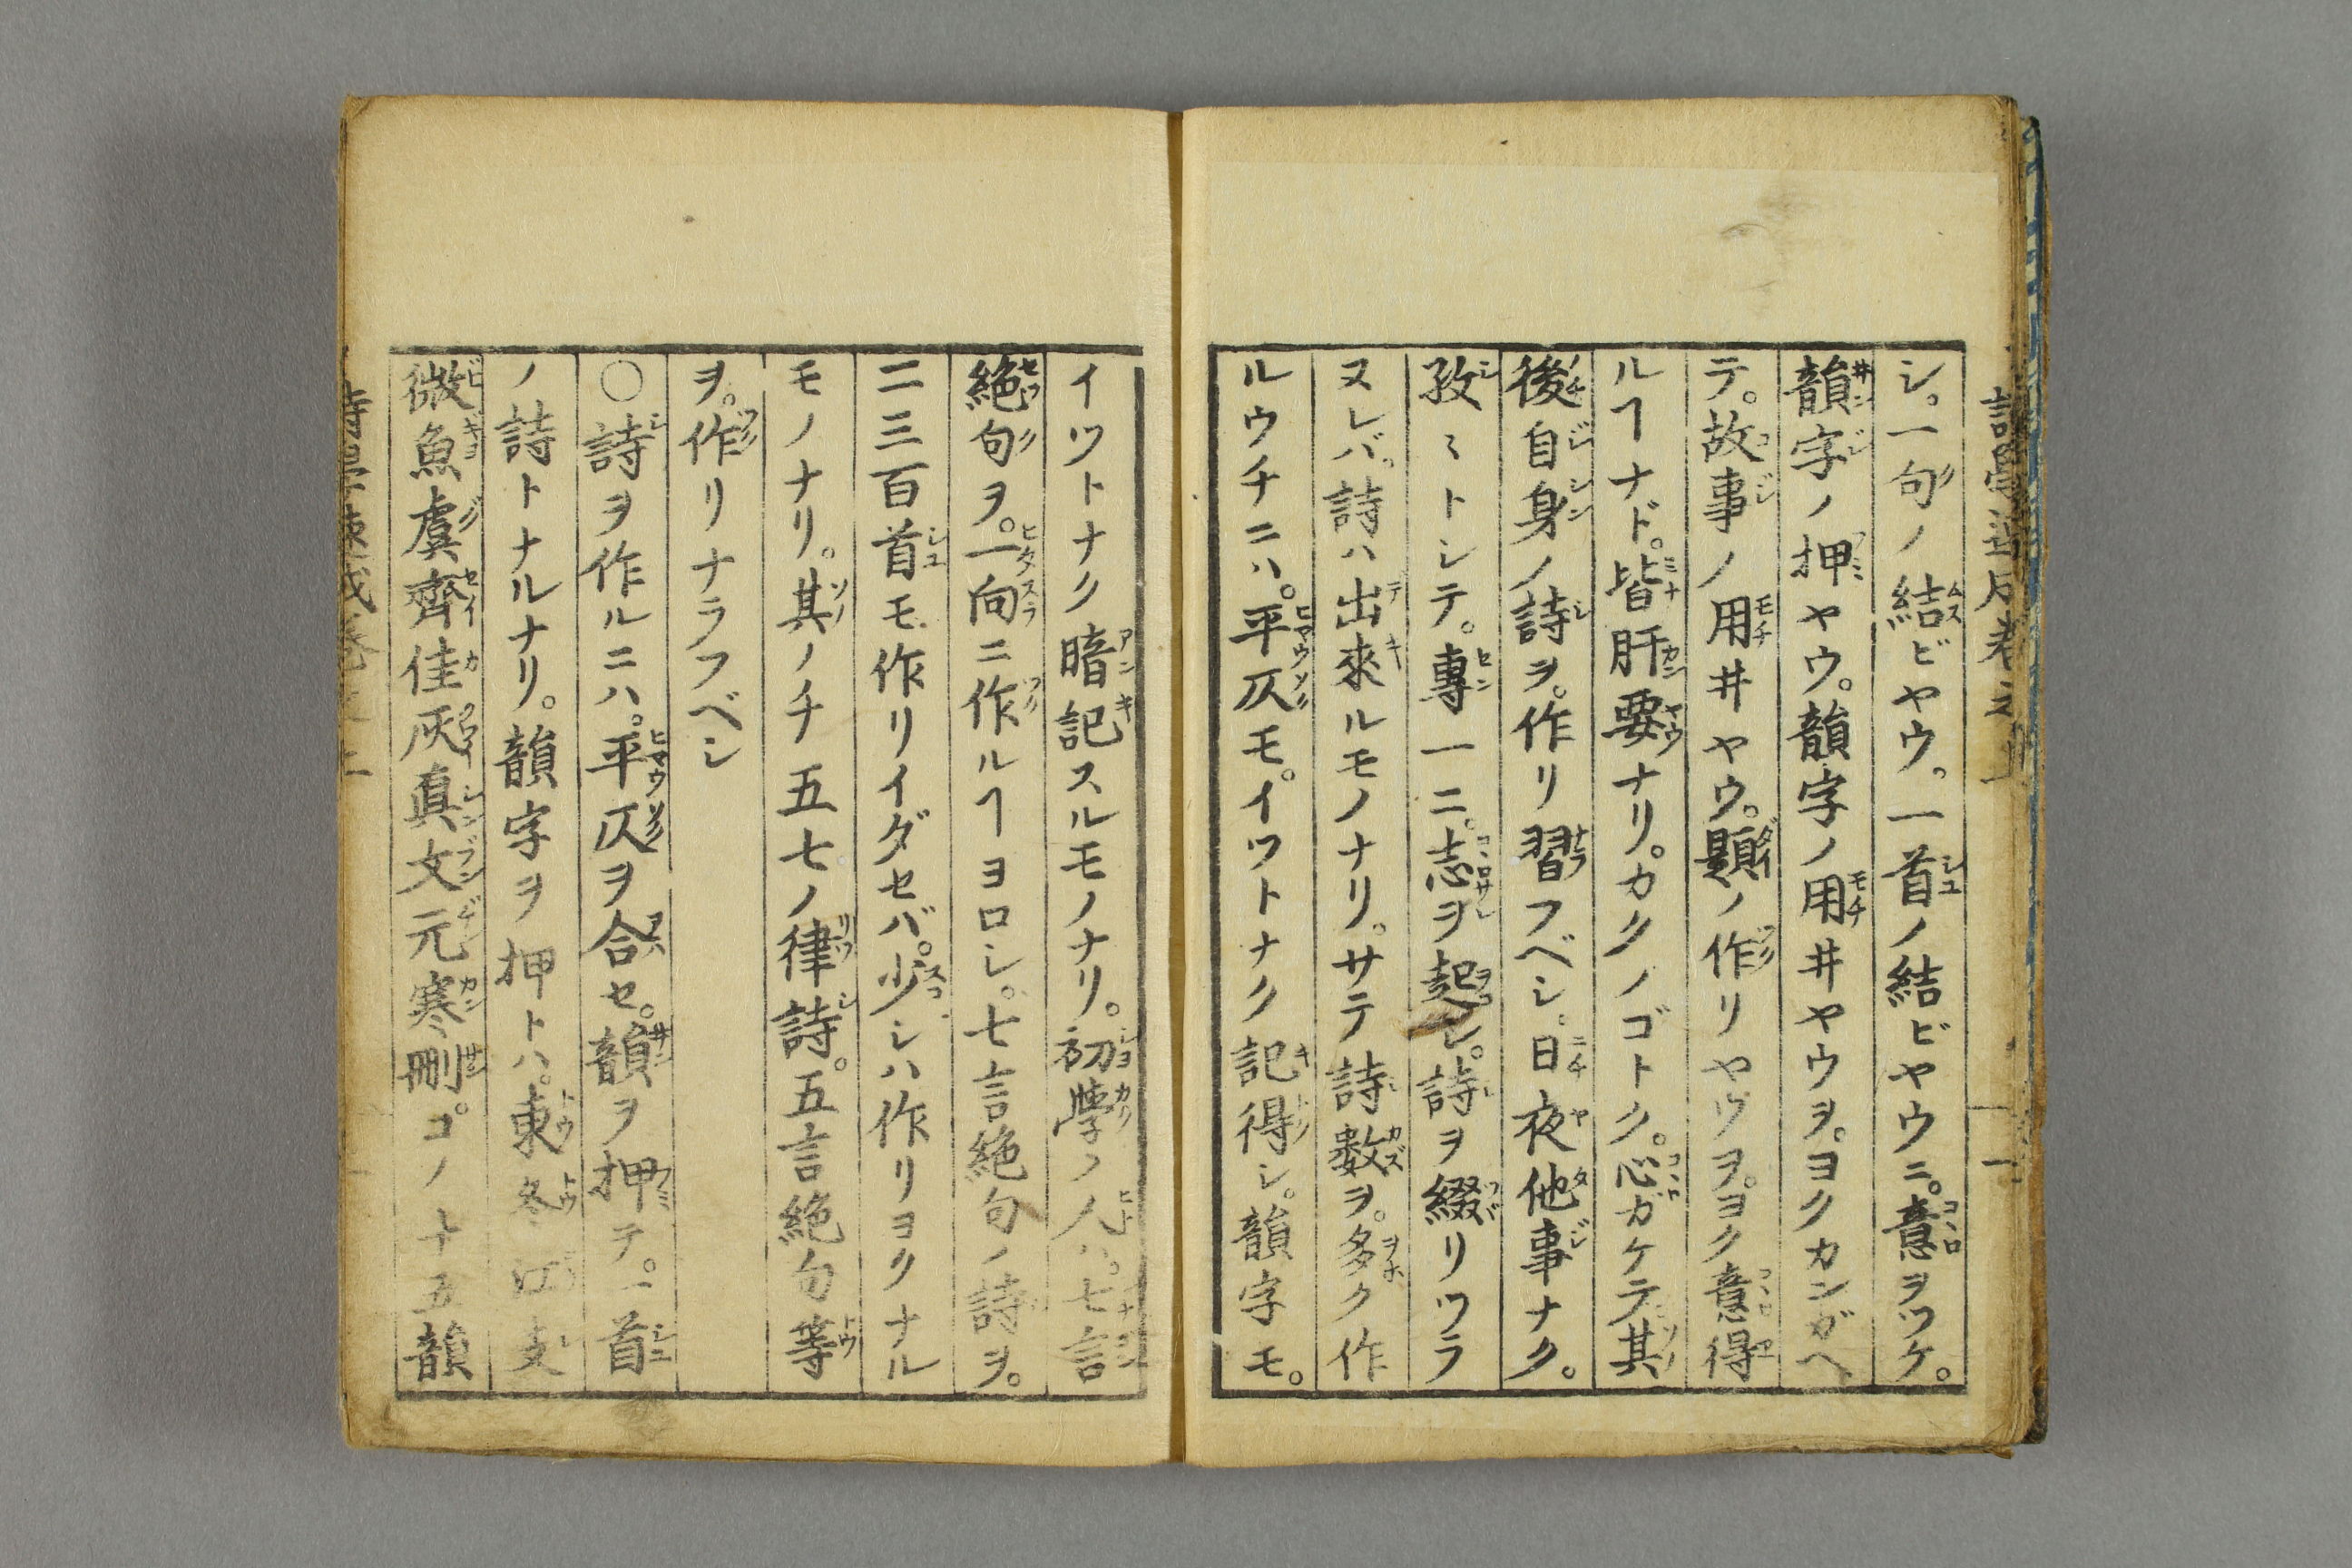 シ。一句ノ結ビヤウ。一首ノ結ビヤウニ。意ヲツケ。
韻字ノ押ヤウ。韻字ノ用井ヤウヲ。ヨクカンガヘ
テ。故事ノ用井ヤウ。題ノ作リヤウヲ。ヨク意得
ルヿナド。皆肝要ナリ。カクノゴトク。心ガケテ其
後自身ノ詩ヲ。作リ習フベシ。日夜他事ナク。
孜〻トシテ。專一ニ。志ヲ起シ。詩ヲ綴リツラ
ヌレバ。詩ハ出來ルモノナリ。サテ詩數ヲ。多ク作
ルウチニハ。平仄モ。イツトナク記得シ。韻字モ。
イツトナク暗記スルモノナリ。初學ノ人ハ。七言
絶句ヲ。一向ニ作ルヿヨロシ。七言絶句ノ詩ヲ。
二三百首モ作リイダセバ。少シハ作リヨクナル
モノナリ。其ノチ五七ノ律詩。五言絶句等
ヲ。作リナラフベシ
〇詩ヲ作ルニハ。平仄ヲ合セ。韻ヲ押テ。一首
ノ詩トナルナリ。韻字ヲ押トハ。東冬江支
微魚虞齊佳灰眞文元寒刪。コノ十五韻